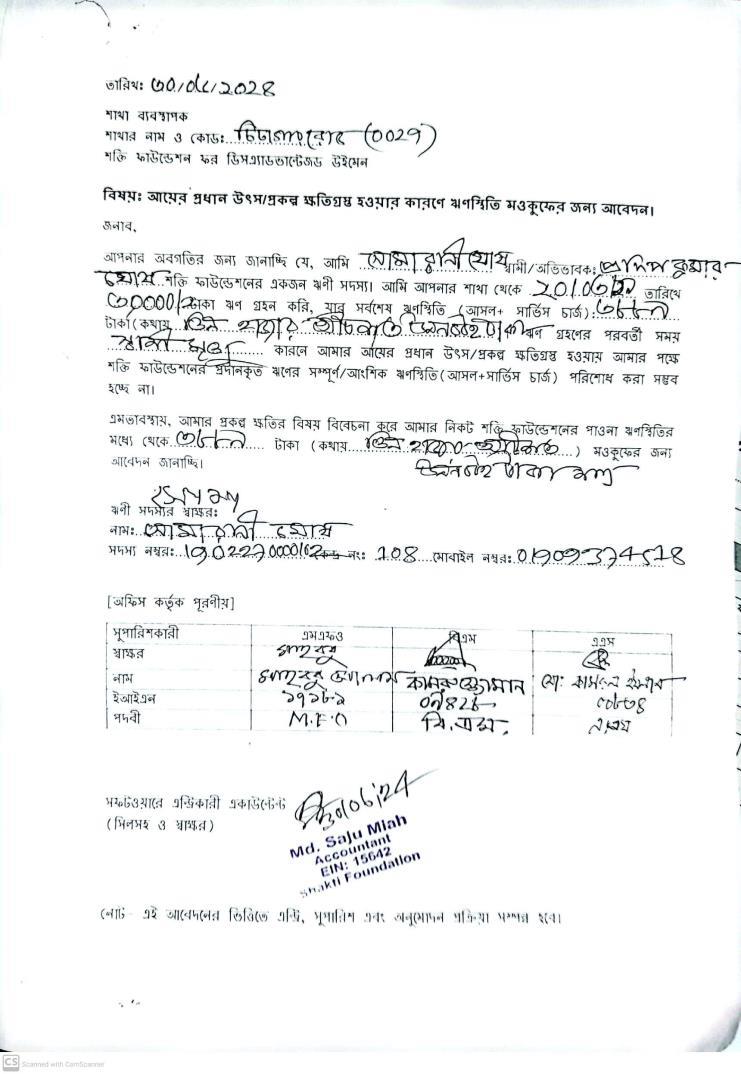 তারিখ: ৩০/০৬/২০২৪
শাখা ব্যবস্থাপক
শাখার নাম ও কোড: (0029)
শক্তি ফাউন্ডেশন ফর ডিসএ্যাডভান্টেজড উইমেন
বিষয়: আয়ের প্রধান উৎস/প্রকল্প ক্ষতিগ্রস্ত হওয়ার কারণে ঋণস্থিতি মওকুফের জন্য আবেদন।
জনাব,
আপনার অবগতির জন্য জানাচ্ছি যে, আমি সোমা রানী ঘোষ স্বামী/অভিভাবক: প্রদিপ কুমার
ঘোষ শক্তি ফাউন্ডেশনের একজন ঋণী সদস্য। আমি আপনার শাখা থেকে তারিখে
৩০০০০/= টাকা ঋণ গ্রহন করি, যার সর্বশেষ ঋণস্থিতি (আসল+ সার্ভিস চার্জ):
টাকা(কথায় তিন হাজার আটশত টাকা ঋণ গ্রহণের পরবর্তী সময়
স্বামী মৃত্যু কারনে আমার আয়ের প্রধান উৎস/প্রকল্প ক্ষতিগ্রস্ত হওয়ায় আমার পক্ষে
শক্তি ফাউন্ডেশনের প্রদানকৃত ঋণের সম্পূর্ণ/আংশিক ঋণস্থিতি(আসল+সার্ভিস চার্জ) পরিশোধ করা সম্ভব
হচ্ছে না।
এমতাবস্থায়, আমার প্রকল্প ক্ষতির বিষয় বিবেচনা করে আমার নিকট শক্তি ফাউন্ডেশনের পাওনা ঋণস্থিতির
মধ্যে থেকে টাকা (কথায় তিন হাজার আটশত ) মওকুফের জন্য
আবেদন জানাচ্ছি। টাকা মাত্র
ঋণী সদস্যর স্বাক্ষর:
নাম: সোমা রানী ঘোষ
সদস্য নম্বর: নং: 108 মোবাইল নম্বর:
[অফিস কর্তৃক পূরণীয়]
সুপারিশকারী এমএফও বিএম এএম
স্বাক্ষর মাহবুব
নাম মাহবুব আলম কামরুজ্জামান মো:
ইআইএন
পদবী M.F.O বি.এম. এ.এম
সফটওয়ারে এন্ট্রিকারী একাউন্টেন্ট 30/06/24
(সিলসহ ও স্বাক্ষর)
Md. Saju Miah
Accountant
EIN: 15642
Shakti Foundation
নোট- এই আবেদনের ভিত্তিতে এন্ট্রি, সুপারিশ এবং অনুমোদন প্রক্রিয়া সম্পন্ন হবে।
CS Scanned with CamScanner